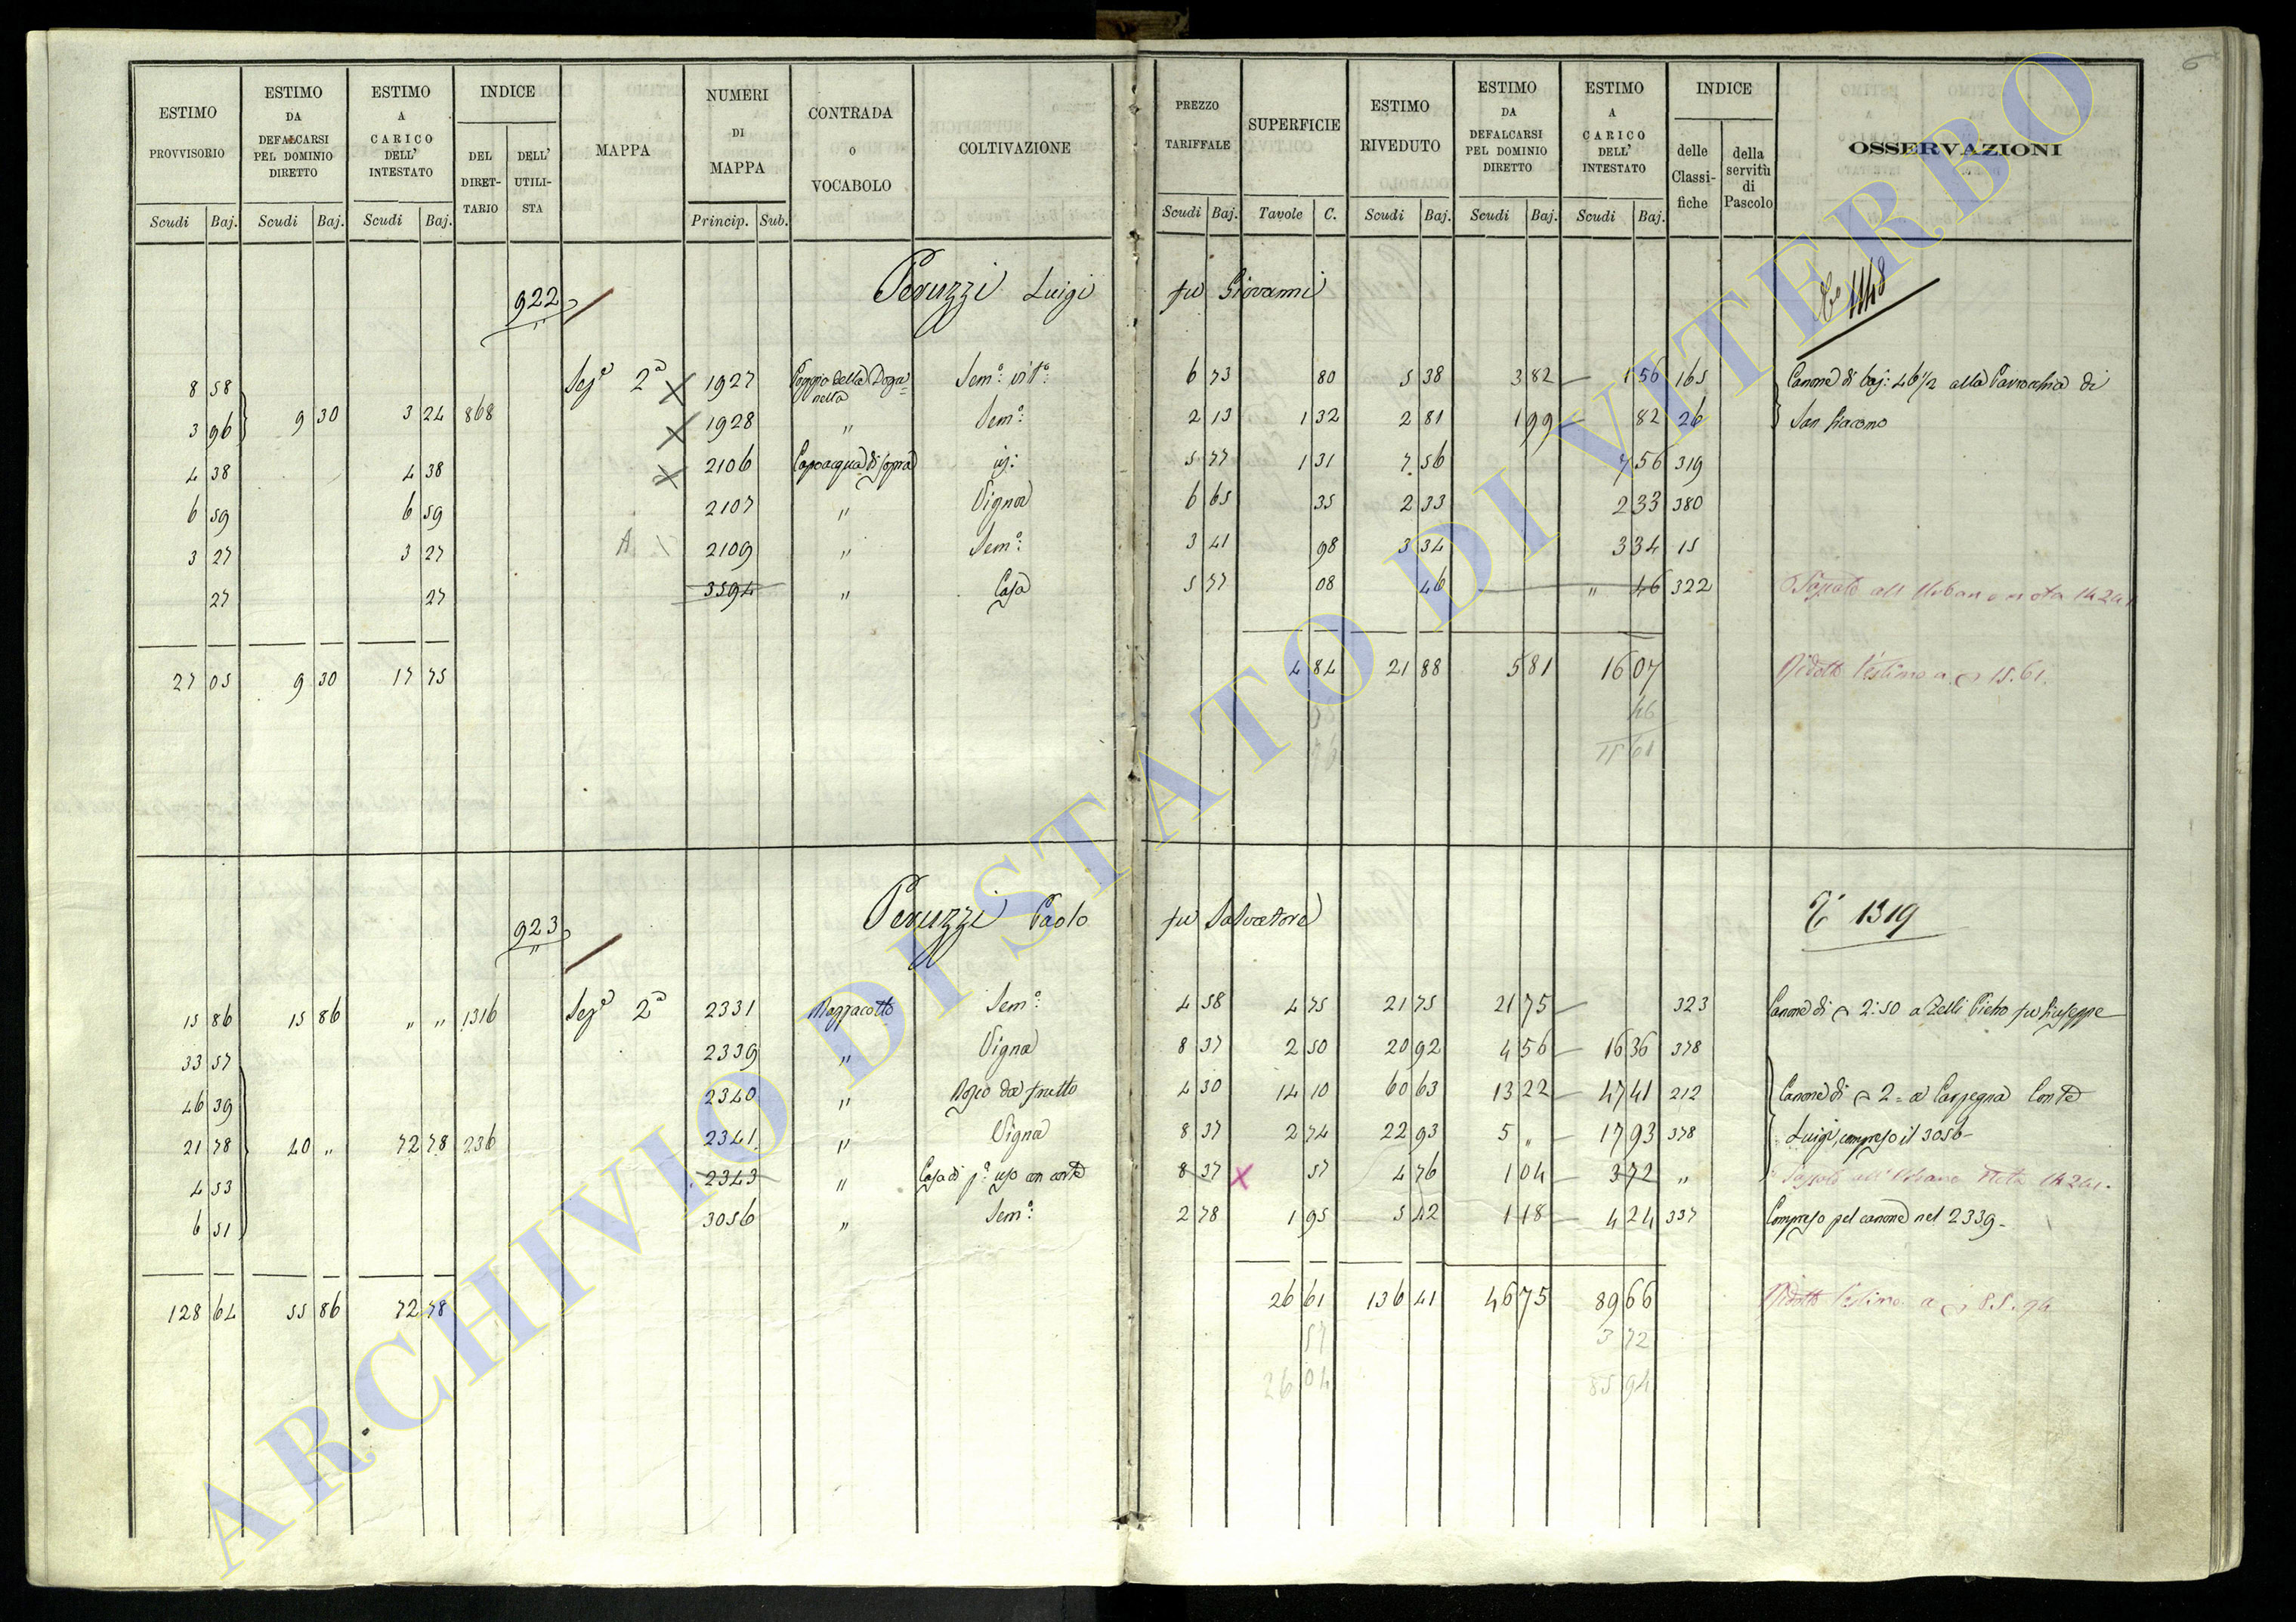 ESTIMO PROVVISORIO | ESTIMO DA DEFALCARSI PEL DOMINIO DIRETTO | ESTIMO A CARICO DELL' INTESTATO | INDICE | MAPPA | NUMERI DI MAPPA | CONTRADA O VOCABOLO | COLTIVAZIONE | PREZZO TARIFFALE | SUPERFICIE | ESTIMO RIVEDUTO | ESTIMO DA DEFALCARSI PEL DOMINIO DIRETTO | ESTIMO A CARICO DELL' INTESTATO | INDICE | OSSERVAZIONI
DEL DIRET-TARIO | DELL' UTILI-STA | delle Classi-fiche | della servitù di Pascolo
Scudi | Baj. | Scudi | Baj. | Scudi | Baj. | Princip. | Sub. | Scudi | Baj. | Tavole | C. | Scudi | Baj. | Scudi | Baj. | Scudi | Baj.
6
922 Peruzzi Luigi fu Giovanni 1148
8 58 | Sez.e 2a | 1927 | Poggio della Doganella | Sem.o vit.o | 6 73 | 80 | 5 38 | 3 82 | 1 56 | 165 | Canone di baj: 46 1/2 alla Parrocchia di
3 96 | 9 30 | 3 24 | 868 | 1928 | " | Sem.o | 2 13 | 1 32 | 2 81 | 1 99 | 82 | 26 | San Giacomo
4 38 | 4 38 | 2106 | Capoacqua di sopra | 5 77 | 1 31 | 7 56 | 7 56 | 319
6 59 | 6 59 | 2107 | " | Vigna | 6 65 | 35 | 2 33 | 2 33 | 380
3 27 | 3 27 | A | 2109 | " | Sem.o | 3 41 | 98 | 3 34 | 3 34 | 15
27 | 27 | 3594 | " | Casa | 5 77 | 08 | 46 | " 46 | 322 | Passato all Urbano nota 14241
27 05 | 9 30 | 17 75 | 4 84 | 21 88 | 5 81 | 16 07 | Ridotto l'estimo a 15.61.
46
15 61
923 Peruzzi Paolo fu Salvatore 1319
15 86 | 15 86 | " " | 1316 | Sez.e 2a | 2331 | Mazzacotto | Sem.o | 4 58 | 4 75 | 21 75 | 21 75 | 323 | Canone di 2:50 a Zelli Pietro fu Giuseppe
33 57 | 2339 | " | Vigna | 8 37 | 2 50 | 20 92 | 4 56 | 16 36 | 378
46 39 | 2340 | " | da frutto | 4 30 | 14 10 | 60 63 | 13 22 | 47 41 | 212 | Canone di 2 = a Carpegna Conte
21 78 | 40 " | 72 78 | 236 | 2341 | " | Vigna | 8 37 | 2 74 | 22 93 | 5 " | 17 93 | 378 | Luigi, compreso il 3056
4 53 | 2343 | " | Casa di p.o uso con corte | 8 37 | 57 | 4 76 | 1 04 | 3 72 | " | Passato all'Urbano Nota 14241.
6 51 | 3056 | " | Sem.o | 2 78 | 1 95 | 5 42 | 1 18 | 4 24 | 337 | Compreso pel canone nel 2339
128 64 | 55 86 | 72 78 | 26 61 | 136 41 | 46 75 | 89 66 | Ridotto l'estimo a 85.94
57 | 3 72
26 04 | 85 94
ARCHIVIO DI STATO DI VITERBO